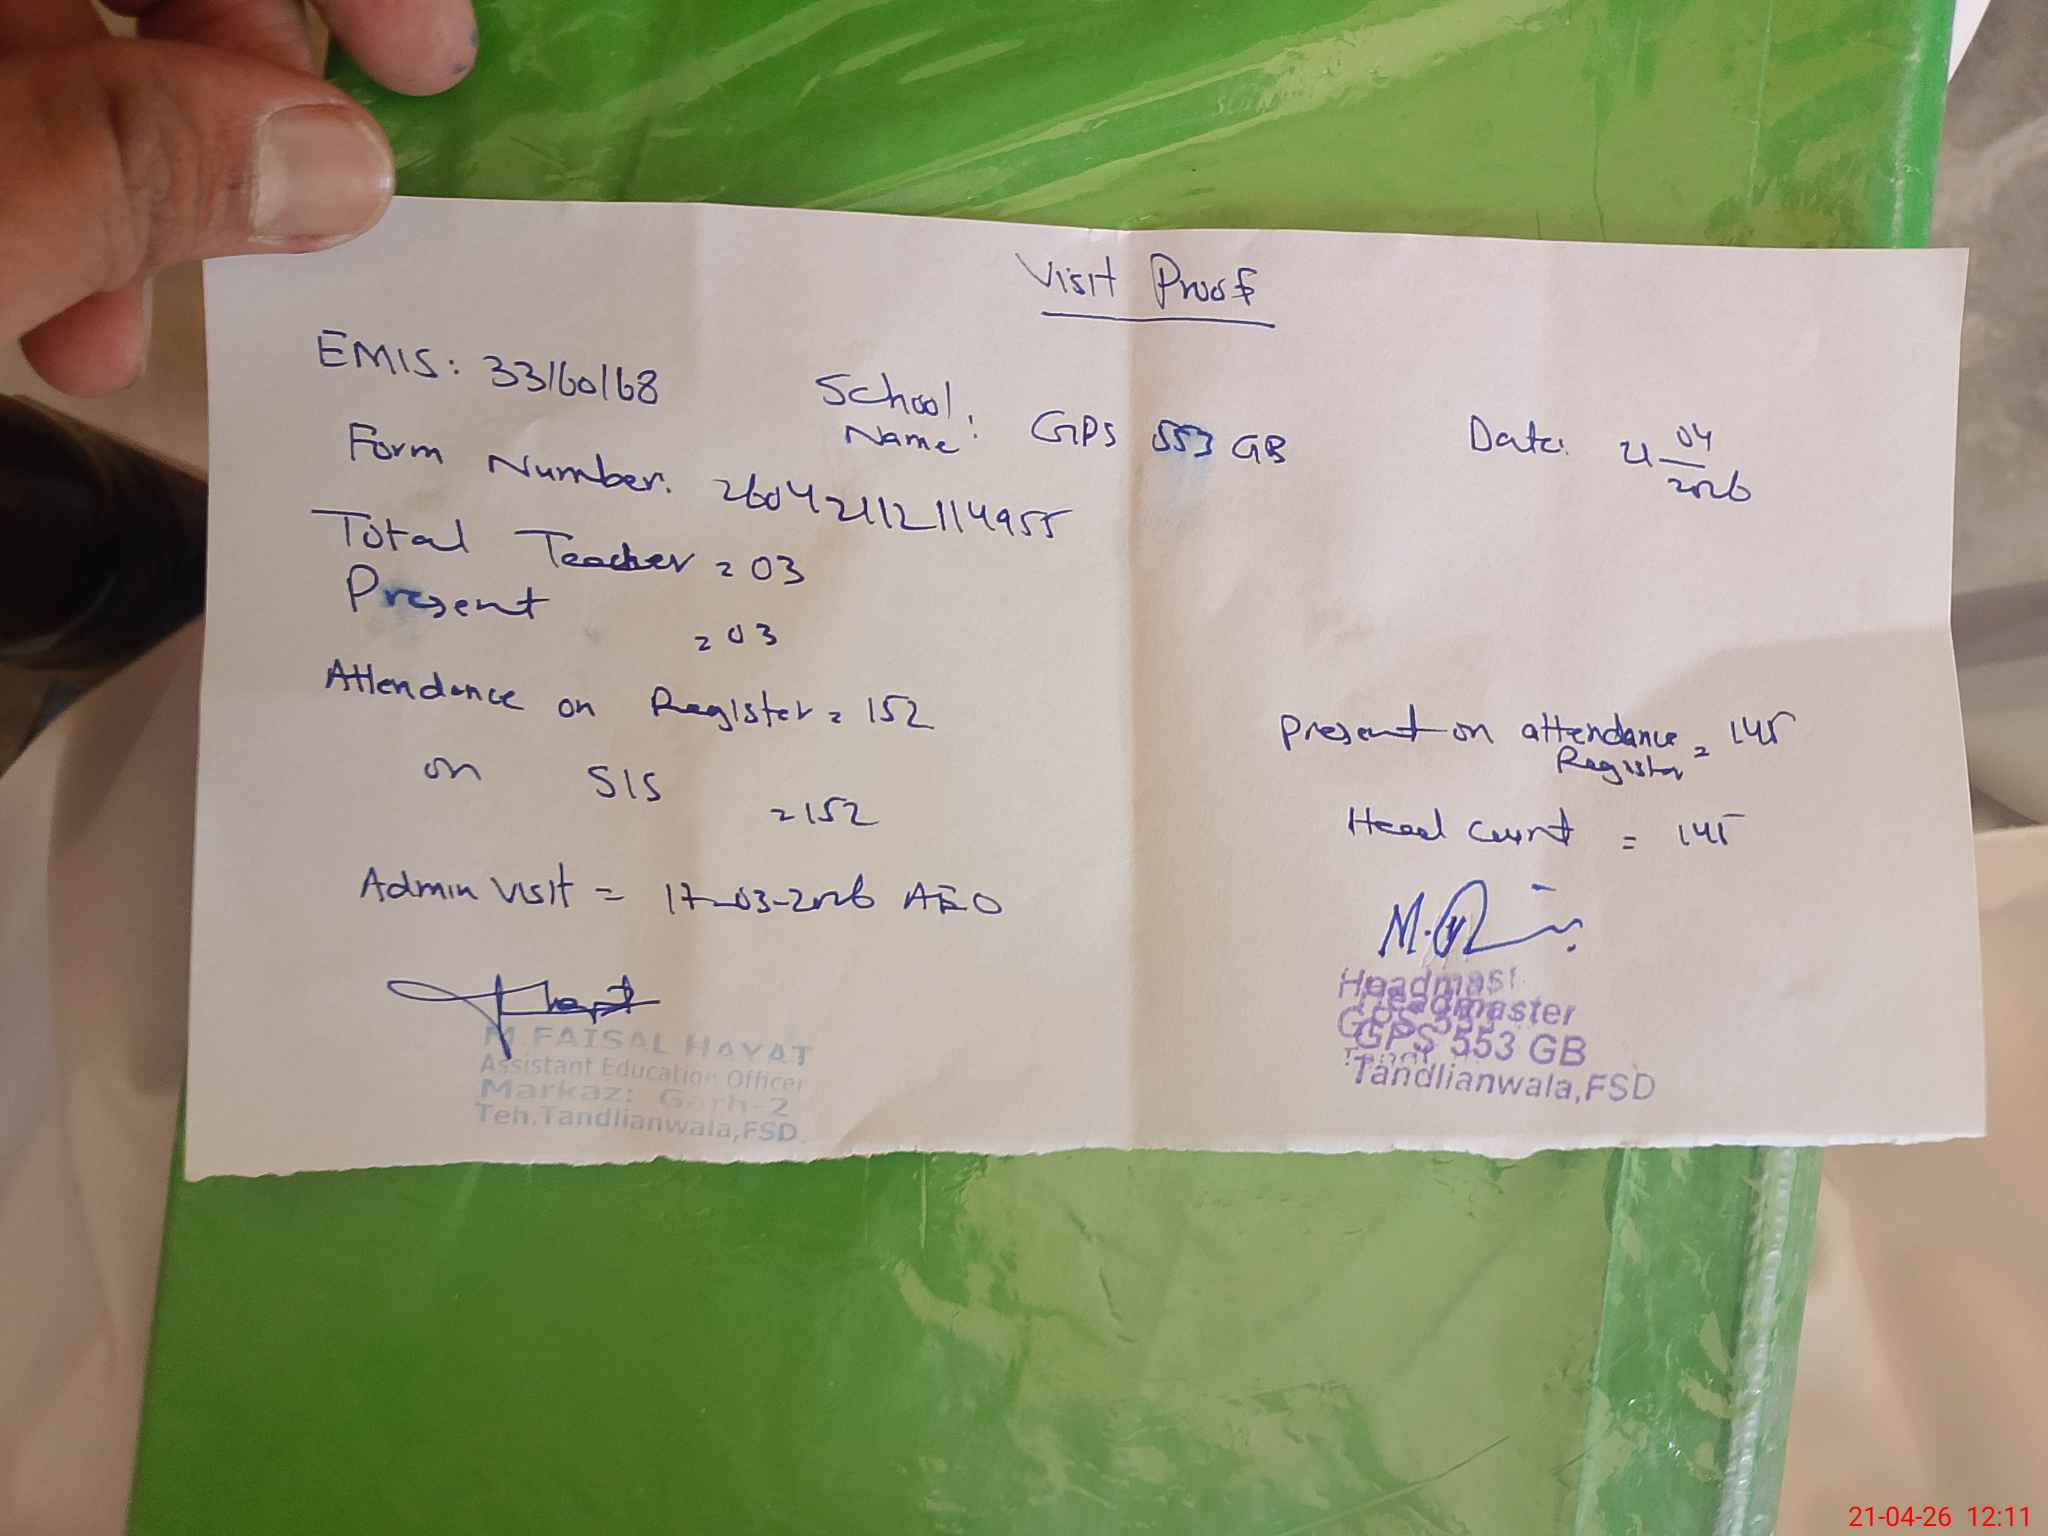 Visit Proof
EMIS: 33160168
School Name: GPS 553 GB
Date: 21 04 2026
Form Number: 26042112114955
Total Teacher = 03
Present = 03
Attendance on Register = 152
on SIS = 152
Present on attendance Register = 145
Head Count = 145
Admin Visit = 17-03-2026 AEO
M FAISAL HAYAT
Assistant Education Officer
Markaz: Garh-2
Teh.Tandlianwala,FSD.
Headmaster
GPS 553 GB
Tandlianwala,FSD
21-04-26 12:11